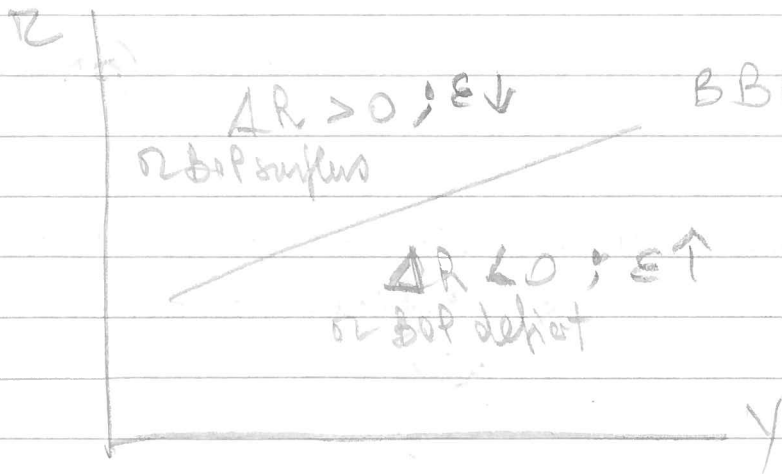 r
ΔR > 0 ; ε↓
BB
or BoP surplus
ΔR < 0 ; ε↑
or BOP deficit
Y